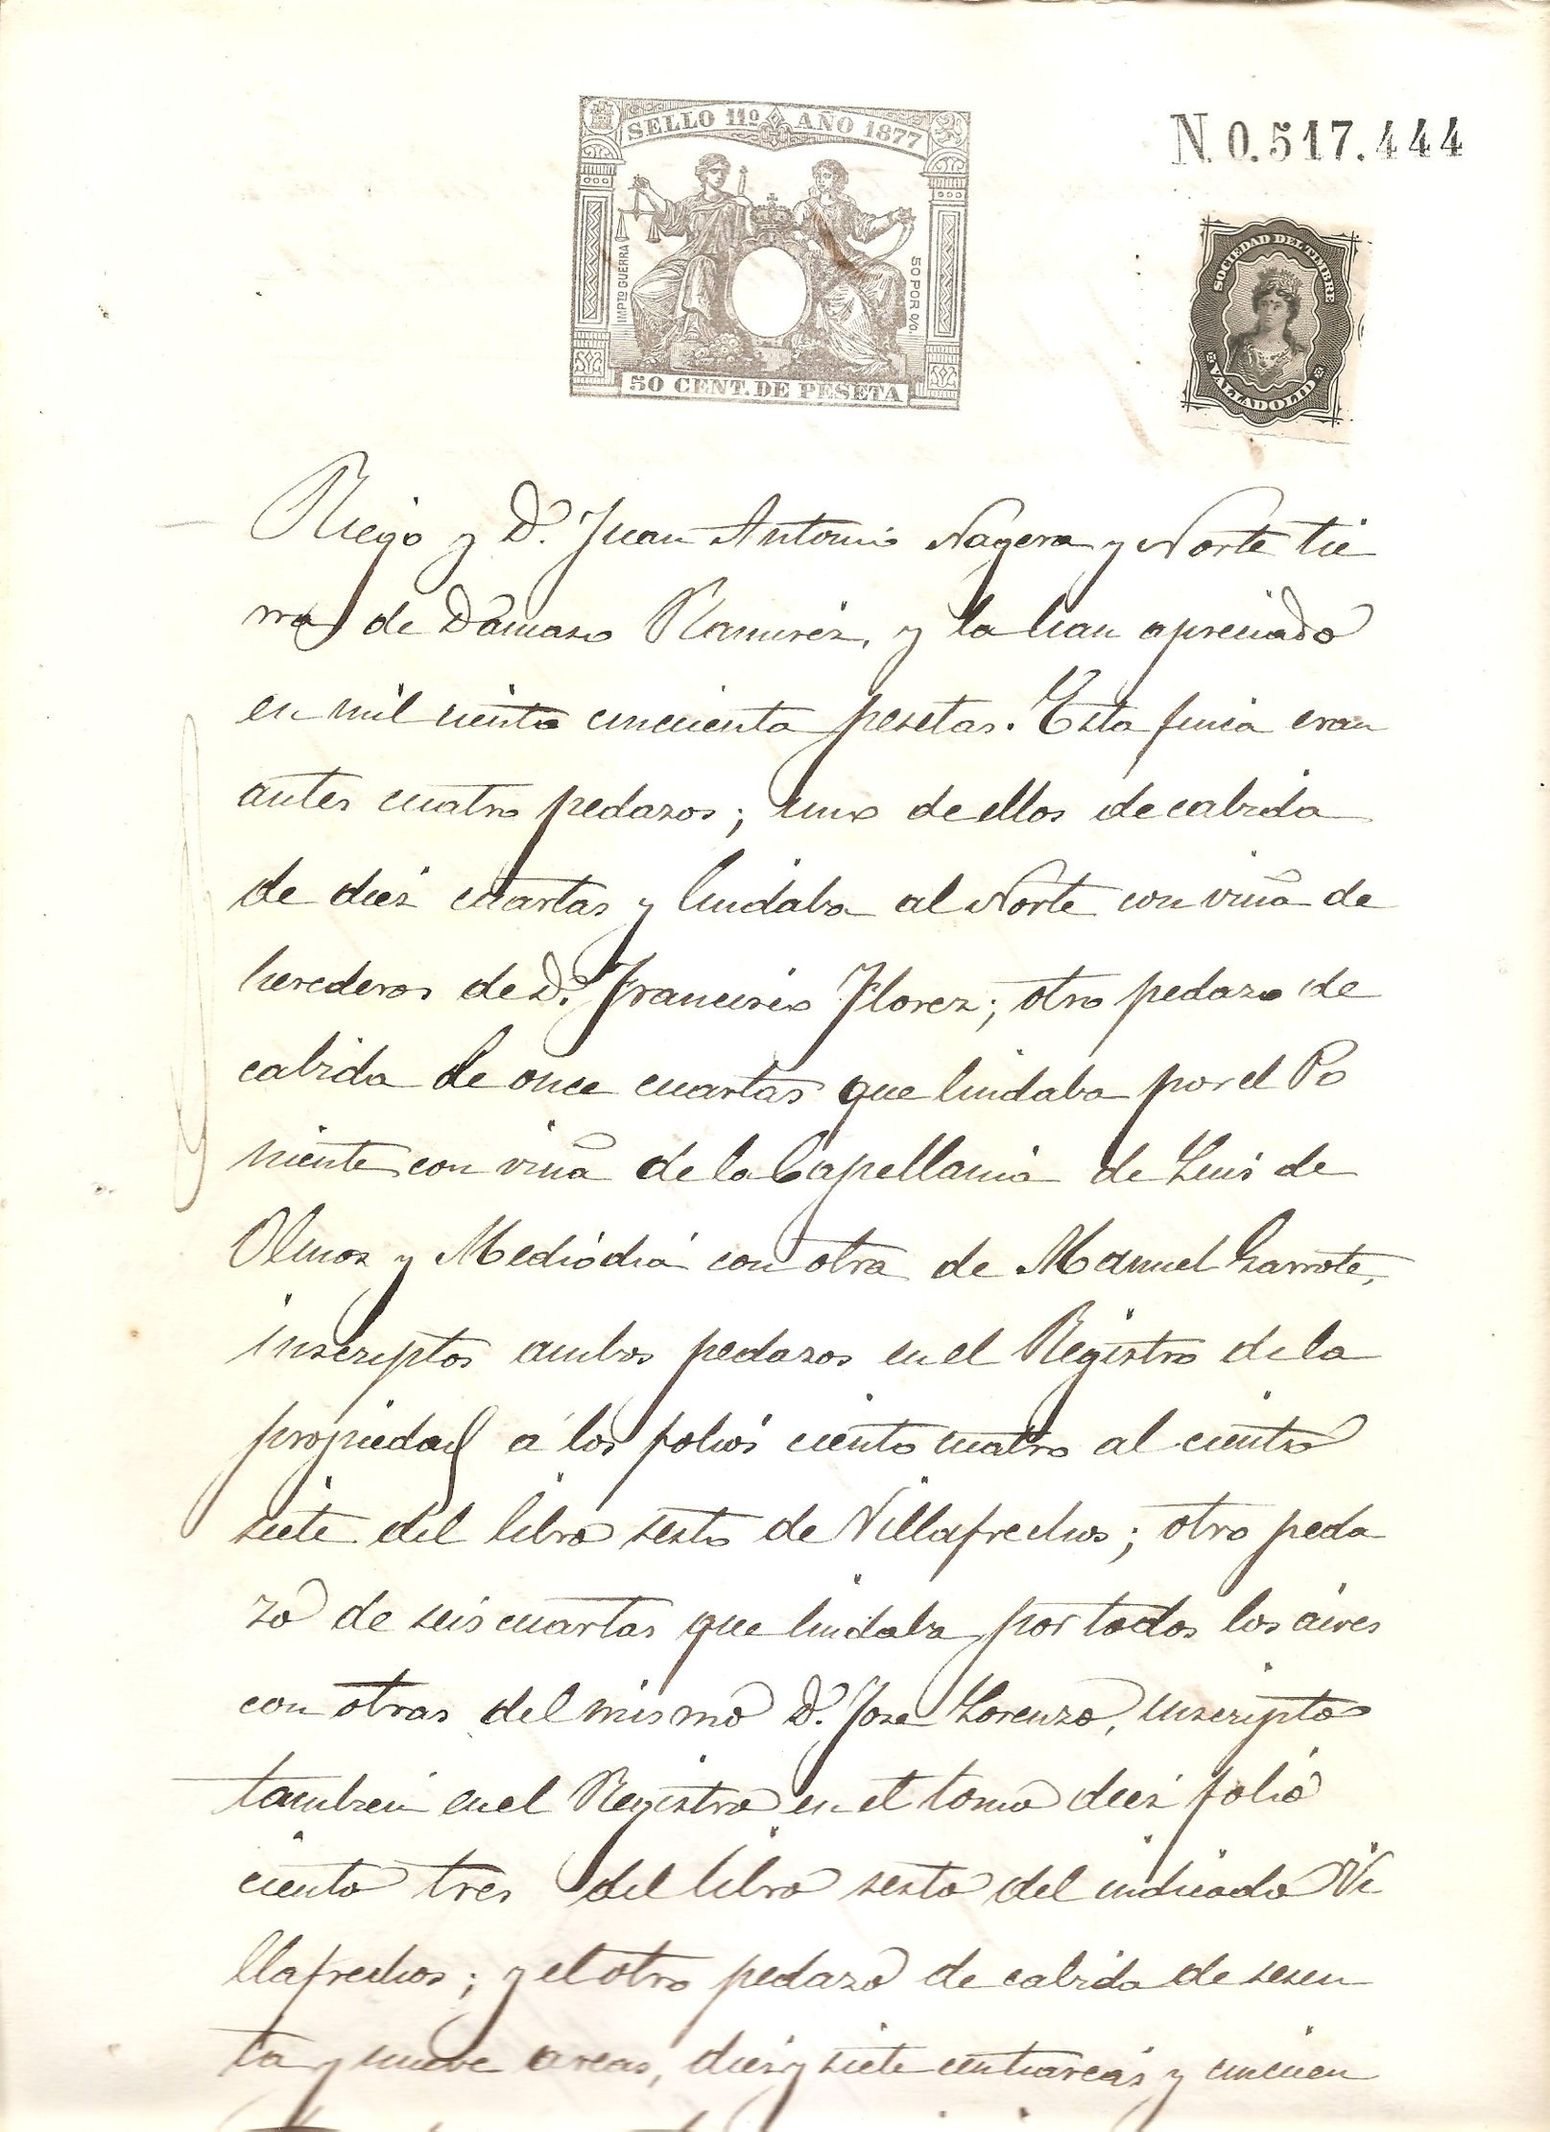 SELLO 11º AÑO 1877
IMPTO GUERRA
50 POR 0/0.
50 CENT. DE PESETA
N. 0.517.444
SOCIEDAD DEL TIMBRE
VALLADOLID
Riego y Dn. Juan Antonio Nagera y Norte tie
rra de Dámaso Ramirez, y la han apreciado
en mil ciento cincuenta pesetas. Esta finca eran
antes cuatro pedazos; uno de ellos de cabida
de diez cuartas y lindaba al Norte con viña de
herederos de Dn. Francisco Florez; otro pedazo de
cabida de once cuartas que lindaba por el Po
niente con viña de la Capellania de Luis de
Olmos y Mediodia con otra de Manuel Garrote,
inscriptos ambos pedazos en el Registro de la
propiedad á los folios ciento cuatro al ciento
siete del libro sesto de Villafrechos; otro peda
zo de seis cuartas que lindaba por todos los aires
con otras del mismo Dn. Jose Lorenzo, inscripto
tambien en el Registro en el tomo diez folio
ciento tres del libro sesto del indicado Vi
llafrechos; y el otro pedazo de cabida de sesen
ta y nueve areas, diez y siete centiareas y cincuen